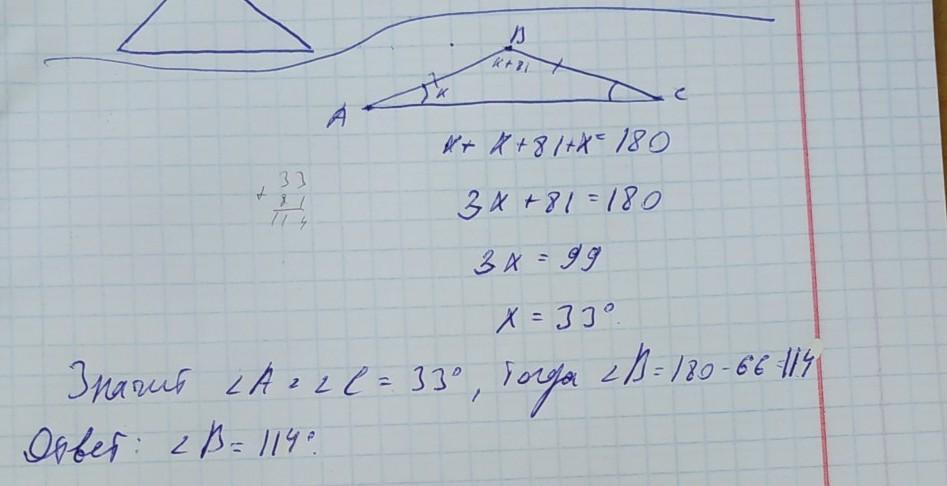 B
x+81
x
A
C
x+ x+81+x=180
33
+ 81
114
3x+81=180
3x=99
x=33°.
Значит ∠A=∠C=33°, тогда ∠B=180-66=114
Ответ: ∠B=114°.